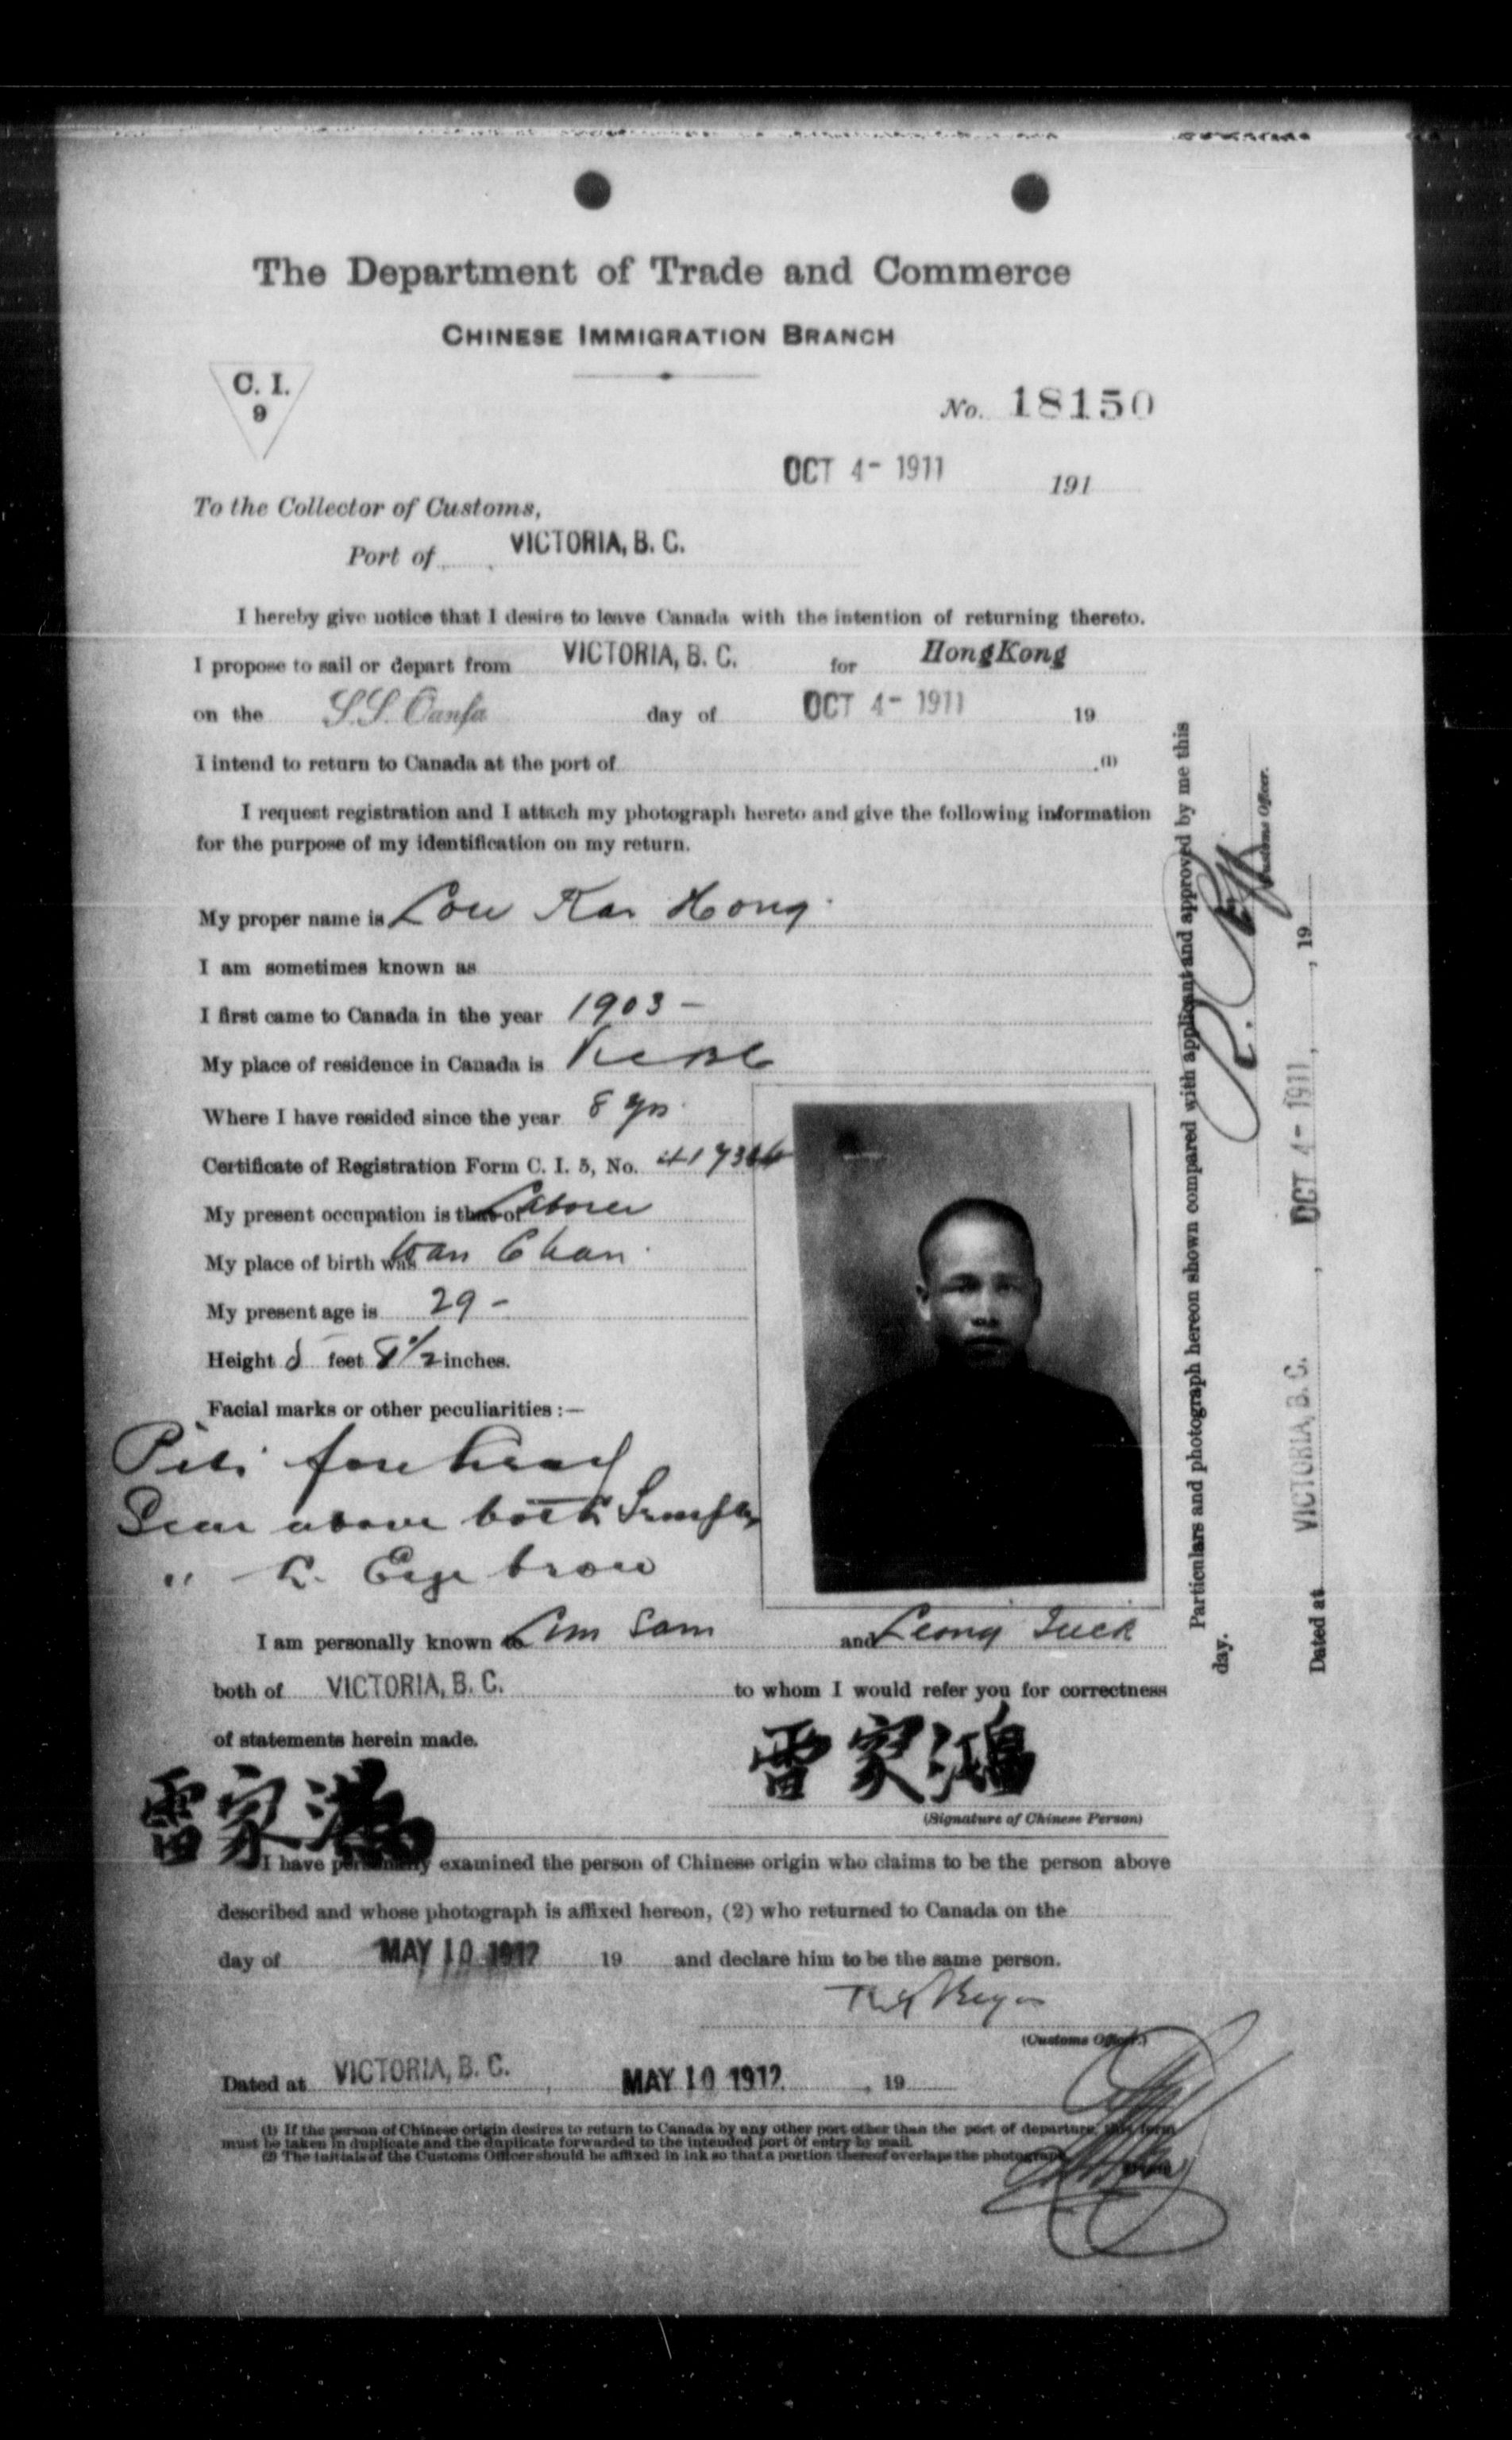 The Department of Trade and Commerce
CHINESE IMMIGRATION BRANCH
C. I.
9
No. 18150
OCT 4- 1911 191
To the Collector of Customs,
Port of VICTORIA, B. C.
I hereby give notice that I desire to leave Canada with the intention of returning thereto.
I propose to sail or depart from VICTORIA, B. C. for HongKong
on the S.S. Oanfa day of OCT 4- 1911 19
I intend to return to Canada at the port of .(1)
I request registration and I attach my photograph hereto and give the following information
for the purpose of my identification on my return.
My proper name is Lou Kar Hong
I am sometimes known as
I first came to Canada in the year 1903 -
My place of residence in Canada is
Where I have resided since the year 8 yrs
Certificate of Registration Form C. I. 5, No.
My present occupation is that of Laborer
My place of birth was Chan
My present age is 29 -
Height 5 feet 8 1/2 inches.
Facial marks or other peculiarities :—
Pits forehead
Scar above both Temples
" R. Eye brow
I am personally known to Sam and Leong
both of VICTORIA, B. C. to whom I would refer you for correctness
of statements herein made.
雷家鴻
(Signature of Chinese Person)
雷家鴻
I have personally examined the person of Chinese origin who claims to be the person above
described and whose photograph is affixed hereon, (2) who returned to Canada on the
day of MAY 10 1912 19 and declare him to be the same person.
(Customs Officer.)
Dated at VICTORIA, B. C. , MAY 10 1912 , 19
(1) If the person of Chinese origin desires to return to Canada by any other port other than the port of departure, this form
must be taken in duplicate and the duplicate forwarded to the intended port of entry by mail.
(2) The initials of the Customs Officer should be affixed in ink so that a portion thereof overlaps the photograph
Particulars and photograph hereon shown compared with applicant and approved by me this
day.
Customs Officer.
Dated at VICTORIA, B. C. , OCT 4- 1911 , , 19